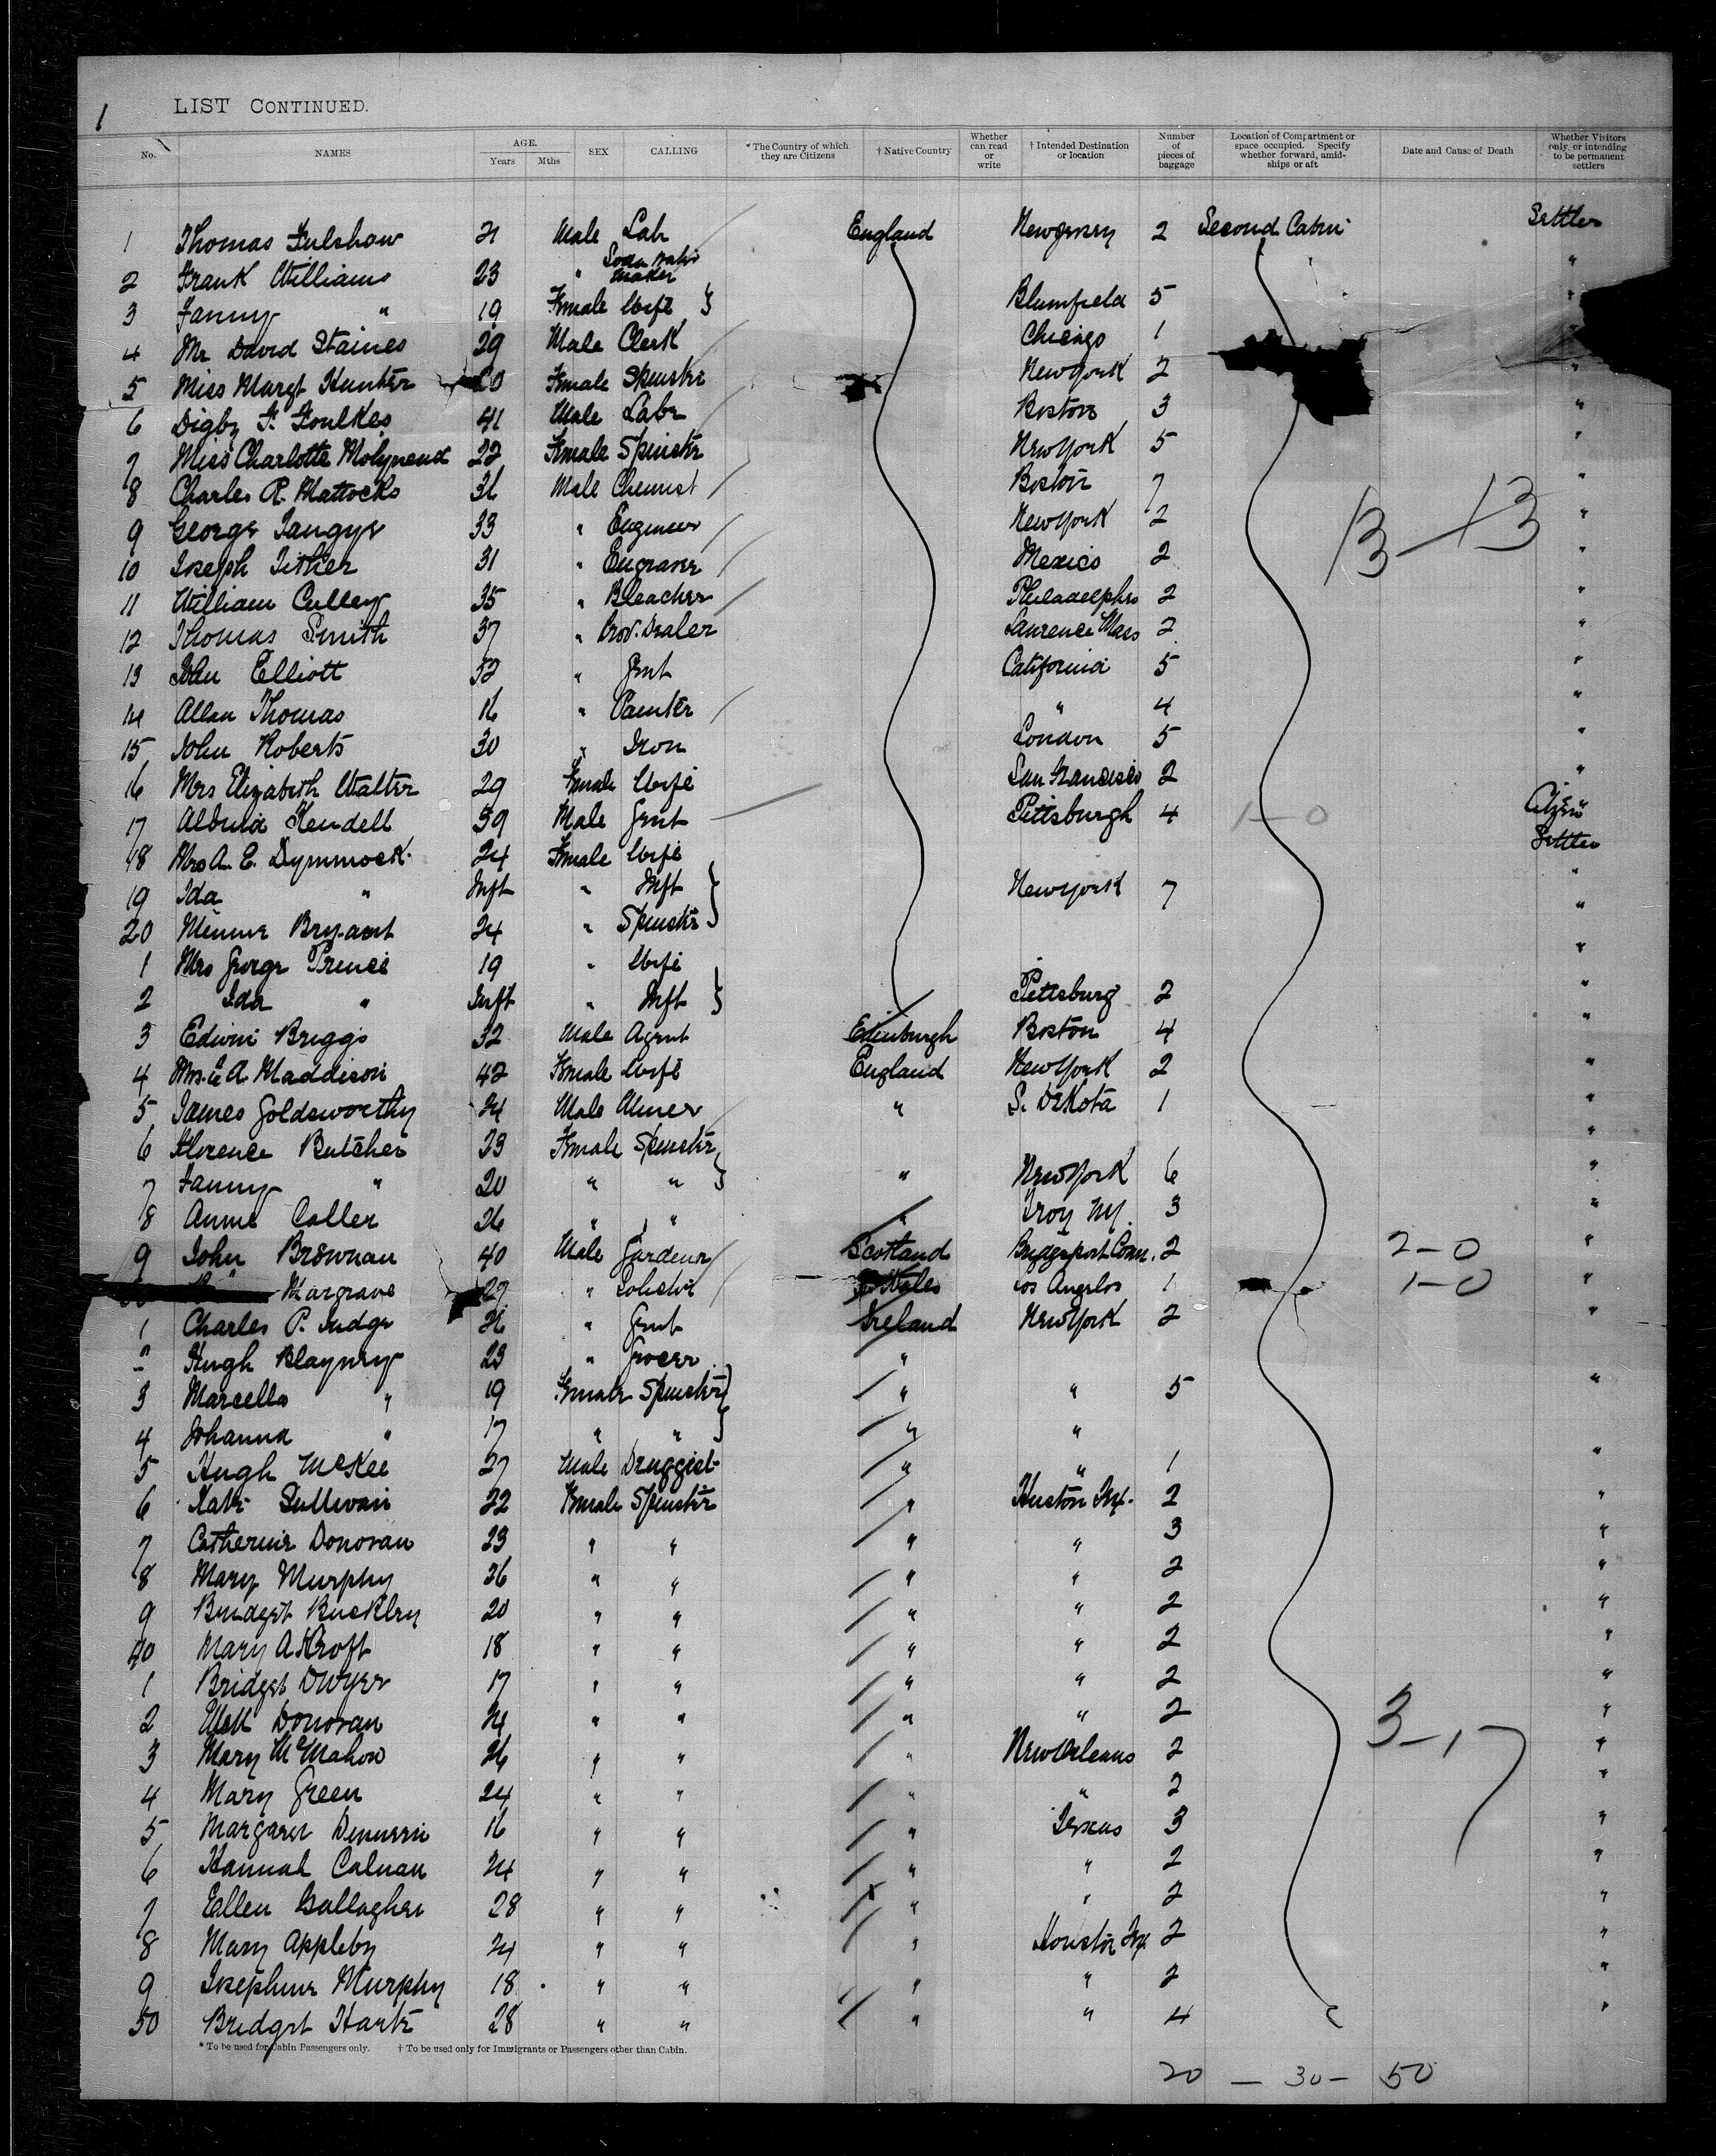 1
LIST CONTINUED.
No. NAMES AGE. Years Mths SEX CALLING * The Country of which they are Citizens † Native Country Whether can read or write † Intended Destination or location Number of pieces of baggage Location of Compartment or space occupied. Specify whether forward, amidships or aft Date and Cause of Death Whether Visitors only, or intending to be permanent settlers
1 Thomas Fulshaw 21 Male Lab England New Jersey 2 Second Cabin Settler
2 Frank Williams 23 " Soda Maker "
3 Fanny " 19 Female Wife Blumfield 5 "
4 Mr David Staines 29 Male Clerk Chicago 1
5 Miss Margt Hunter 20 Female Spinster New York 2 "
6 Digby F. Foulkes 41 Male Labr Boston 3 "
7 Miss Charlotte Molyneux 22 Female Spinstr New York 5 "
8 Charles R. Mattocks 36 Male Chemist Boston 7 "
9 George Tangye 33 " Engineer New York 2 13 - 13 "
10 Joseph Tither 31 " Engraver Mexico 2 "
11 William Culley 35 " Bleacher Philadelphia 2 "
12 Thomas Smith 37 " Prov. Dealer Laurence Mass 2 "
13 John Elliott 52 " Gent California 5 "
14 Allan Thomas 16 " Painter " 4 "
15 John Roberts 30 " Iron London 5 "
16 Mrs Elizabeth Walter 29 Female Wife San Francisco 2 "
17 Kendell 39 Male Gent Pittsburgh 4 1 - 0 Citizen
18 Mrs A. E. Dymmock 24 Female Wife Settler
19 Ida " Inft " Inft New York 7 "
20 Minnie Bryant 24 " Spinstr "
1 Mrs George Prince 19 " Wife "
2 Ida " Inft " Inft Pittsburg 2 "
3 Edwin Briggs 32 Male Agent Edinburgh Boston 4 "
4 Mrs. A. Maddison 42 Female Wife England New York 2 "
5 James Goldsworthy 24 Male Miner " S. Dakota 1 "
6 Florence Butcher 23 Female Spinster "
7 Fanny " 20 " " " New York 6 "
8 Annie Caller 26 " " " Troy NY. 3 "
9 John Brownan 40 Male Gardener Scotland Bridgeport Conn. 2 2 - 0 "
Hargrave 27 " Solicitor Wales Los Angelos 1 1 - 0 "
1 Charles P. Judge 26 " Gent Ireland New York 2 "
2 Hugh Blayney 23 " Grocer "
3 Marcella " 19 Female Spinster " " 5 "
4 Johanna " 17 " " " "
5 Hugh McKee 27 Male Druggist " " 1 "
6 Kate Sullivan 22 Female Spinster " Huston Tex. 2 "
7 Catherine Donovan 23 " " " " 3 "
8 Mary Murphy 26 " " " " 2 "
9 Bridget Buckley 20 " " " " 2 "
40 Mary A Kroft 18 " " " " 2 "
1 Bridget Dwyer 17 " " " " 2 "
2 Donovan 24 " " " " 2 "
3 Mary McMahon 26 " " " New Orleans 2 3 - 17 "
4 Mary Green 24 " " " " 2 "
5 Margaret 16 " " " Texas 3 "
6 Hannah Calnan 24 " " " " 2 "
7 Ellen Gallagher 28 " " " " 2 "
8 Mary Appleby 24 " " " Houston Tex. 2 "
9 Josephine Murphy 18 " " " " 2 "
50 Bridget Harte 28 " " " " 4 "
* To be used for Cabin Passengers only. † To be used only for Immigrants or Passengers other than Cabin.
20 - 30 - 50